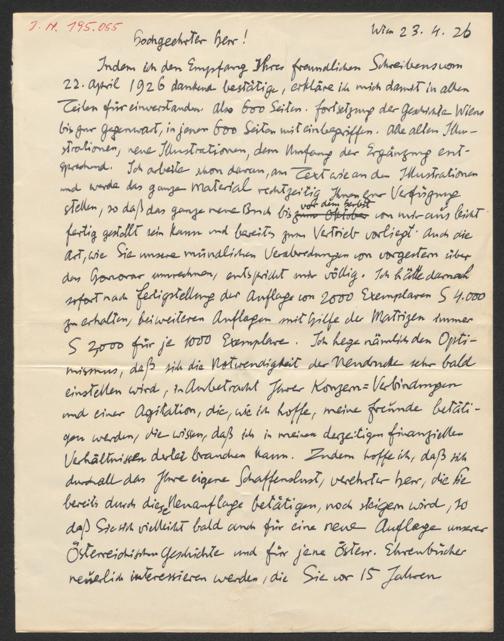 I. N. 195.055
Wien 23. 4. 26
Hochgeehrter Herr!
Indem ich den Empfang Ihres freundlichen Schreibens vom
22. April 1926 dankend bestätige, erkläre ich mich damit in allen
Teilen für einverstanden. Also 600 Seiten. Fortsetzung der Geschichte Wiens
bis zur Gegenwart, in jenen 600 Seiten mit einbegriffen. Alle alten Illu-
strationen, neue Illustrationen, dem Umfang der Ergänzung ent-
sprechend. Ich arbeite schon daran, am Text wie an den Illustrationen
und werde das ganze Material rechtzeitig Ihnen zur Verfügung
stellen, so daß das ganze neue Buch bis zum Oktober vor dem Herbst von mir aus leicht
fertig gestellt sein kann und bereits zum Vertrieb vorliegt. Auch die
Art, wie Sie unsere mündlichen Verabredungen von vorgestern über
das Honorar umrechnen, entspricht mir völlig. Ich hätte darnach
sofort nach Fertigstellung der Auflage von 2000 Exemplaren S 4.000
zu erhalten, bei weiteren Auflagen mit Hilfe der Matrizen immer
S 2,000 für je 1000 Exemplare. Ich hege nämlich den Opti-
mismus, daß sich die Notwendigkeit der Neudrucke sehr bald
einstellen wird, in Anbetracht Ihrer Konzern-Verbindungen
und einer Agitation, die, wie ich hoffe, meine Freunde betäti-
gen werden, die wissen, daß ich in meinen derzeitigen finanziellen
Verhältnissen derlei brauchen kann. Zudem hoffe ich, daß sich
durch all das Ihre eigene Schaffenslust, verehrter Herr, die Sie
bereits durch diese Neuauflage betätigen, noch steigern wird, so
daß Sie sich vielleicht bald auch für eine neue Auflage unserer
Österreichischen Geschichte und für jene Österr. Ehrenbücher
neuerlich interessieren werden, die Sie vor 15 Jahren